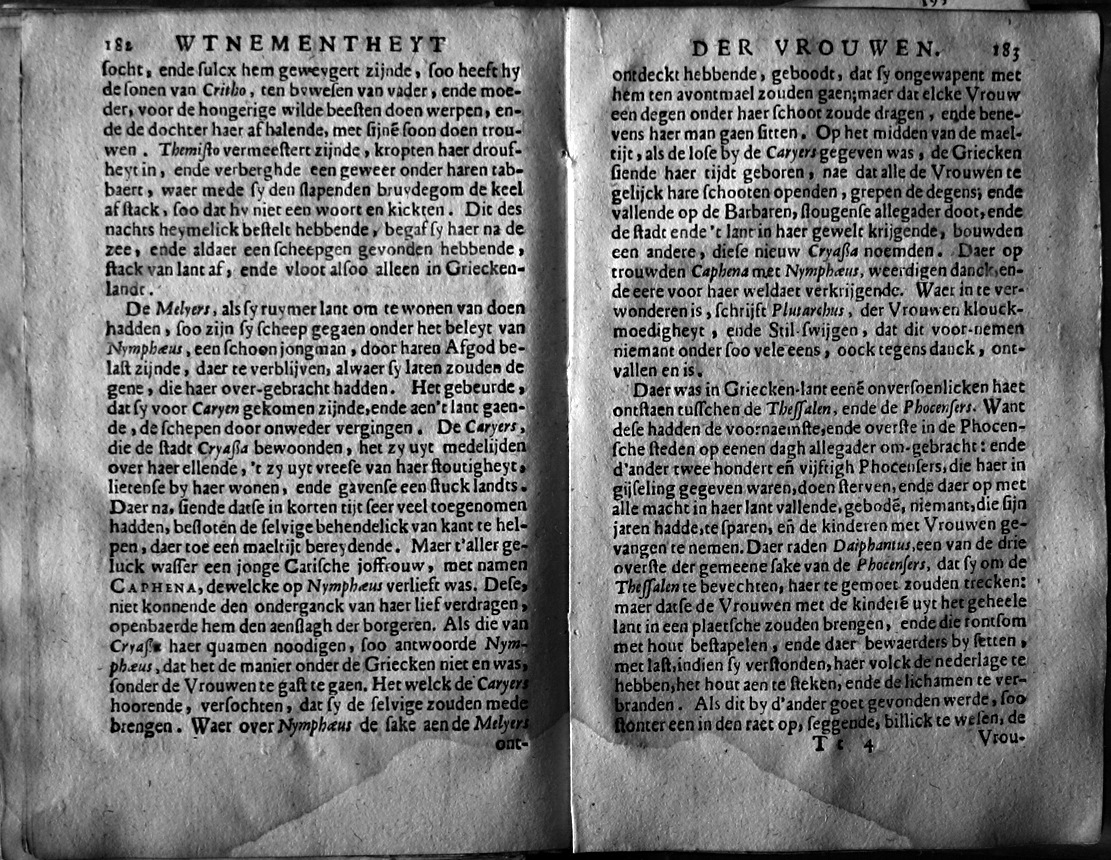 182 WTNEMENTHEYT
ſocht, ende ſulcx hem geweygert zijnde, ſoo heeft hy
de ſonen van Critho, ten bywesen van vader, ende moe-
der, voor de hongerige wilde beeſten doen werpen, en-
de de dochter haer af halende, met ſijnē ſoon doen trou-
wen. Themiſto vermeeſtert zijnde, kropten haer drouf-
heyt in, ende verberghde een geweer onder haren tab-
baert, waer mede ſy den ſlapenden bruydegom de keel
af ſtack, ſoo dat hy niet een woort en kickten. Dit des
nachts heymelick beſtelt hebbende, begaf ſy haer na de
zee, ende aldaer een ſcheepgen gevonden hebbende,
ſtack van lant af, ende vloot alſoo alleen in Griecken-
landt.
De Melyers, als ſy ruymer lant om te wonen van doen
hadden, ſoo zijn ſy ſcheep gegaen onder het beleyt van
Nymphæus, een ſchoon jongman, door haren Afgod be-
laſt zijnde, daer te verblijven, alwaer ſy laten zouden de
gene, die haer over-gebracht hadden. Het gebeurde,
dat ſy voor Caryen gekomen zijnde,ende aen't lant gaen-
de, de ſchepen door onweder vergingen. De Caryers,
die de ſtadt Cryaſſa bewoonden, het zy uyt medelijden
over haer ellende, 't zy uyt vreeſe van haer ſtoutigheyt,
lietenſe by haer wonen, ende gavenſe een ſtuck landts.
Daer na, ſiende datſe in korten tijt ſeer veel toegenomen
hadden, beſloten de ſelvige behendelick van kant te hel-
pen, daer toe een maeltijt bereydende. Maer t'aller ge-
luck waſſer een jonge Cariſche joffrouw, met namen
CAPHENA, dewelcke op Nymphæus verlieft was. Deſe,
niet konnende den onderganck van haer lief verdragen,
openbaerde hem den aenſlagh der borgeren. Als die van
Cryaſſa haer quamen noodigen, ſoo antwoorde Nym-
phæus, dat het de manier onder de Griecken niet en was,
ſonder de Vrouwen te gaſt te gaen. Het welck de Caryers
hoorende, verſochten, dat ſy de ſelvige zouden mede
brengen. Waer over Nymphæus de ſake aen de Melyers
ont-
DER VROUWEN. 183
ontdeckt hebbende, geboodt, dat ſy ongewapent met
hem ten avontmael zouden gaen;maer dat elcke Vrouw
een degen onder haer ſchoot zoude dragen, ende bene-
vens haer man gaen ſitten. Op het midden van de mael-
tijt, als de loſe by de Caryers gegeven was, de Griecken
ſiende haer tijdt geboren, nae dat alle de Vrouwen te
gelijck hare ſchooten openden, grepen de degens; ende
vallende op de Barbaren, ſlougenſe allegader doot, ende
de ſtadt ende 't lant in haer gewelt krijgende, bouwden
een andere, dieſe nieuw Cryaſſa noemden. Daer op
trouwden Caphena met Nymphæus, weerdigen danck,en-
de eere voor haer weldaet verkrijgende. Waer in te ver-
wonderen is, ſchrijft Plutarchus, der Vrouwen klouck-
moedigheyt, ende Stil-ſwijgen, dat dit voor-nemen
niemant onder ſoo vele eens, oock tegens danck, ont-
vallen en is.
Daer was in Griecken-lant eenē onverſoenlicken haet
ontſtaen tuſſchen de Theſſalen, ende de Phocenſers. Want
deſe hadden de voornaemſte,ende overſte in de Phocen-
ſche ſteden op eenen dagh allegader om-gebracht: ende
d'ander twee hondert eñ vijftigh Phocenſers, die haer in
gijſeling gegeven waren,doen ſterven, ende daer op met
alle macht in haer lant vallende, gebodē, niemant,die ſijn
jaren hadde,te ſparen, eñ de kinderen met Vrouwen ge-
vangen te nemen. Daer raden Daiphantus,een van de drie
overſte der gemeene ſake van de Phocenſers, dat ſy om de
Theſſalen te bevechten, haer te gemoet zouden trecken:
maer datſe de Vrouwen met de kinderē uyt het geheele
lant in een plaetſche zouden brengen, ende die rontſom
met hout beſtapelen, ende daer bewaerders by ſetten,
met laſt,indien ſy verſtonden, haer volck de nederlage te
hebben,het hout aen te ſteken, ende de lichamen te ver-
branden. Als dit by d'ander goet gevonden werde, ſoo
ſtonter een in den raet op, ſeggende, billick te weſen, de
T t 4 Vrou-